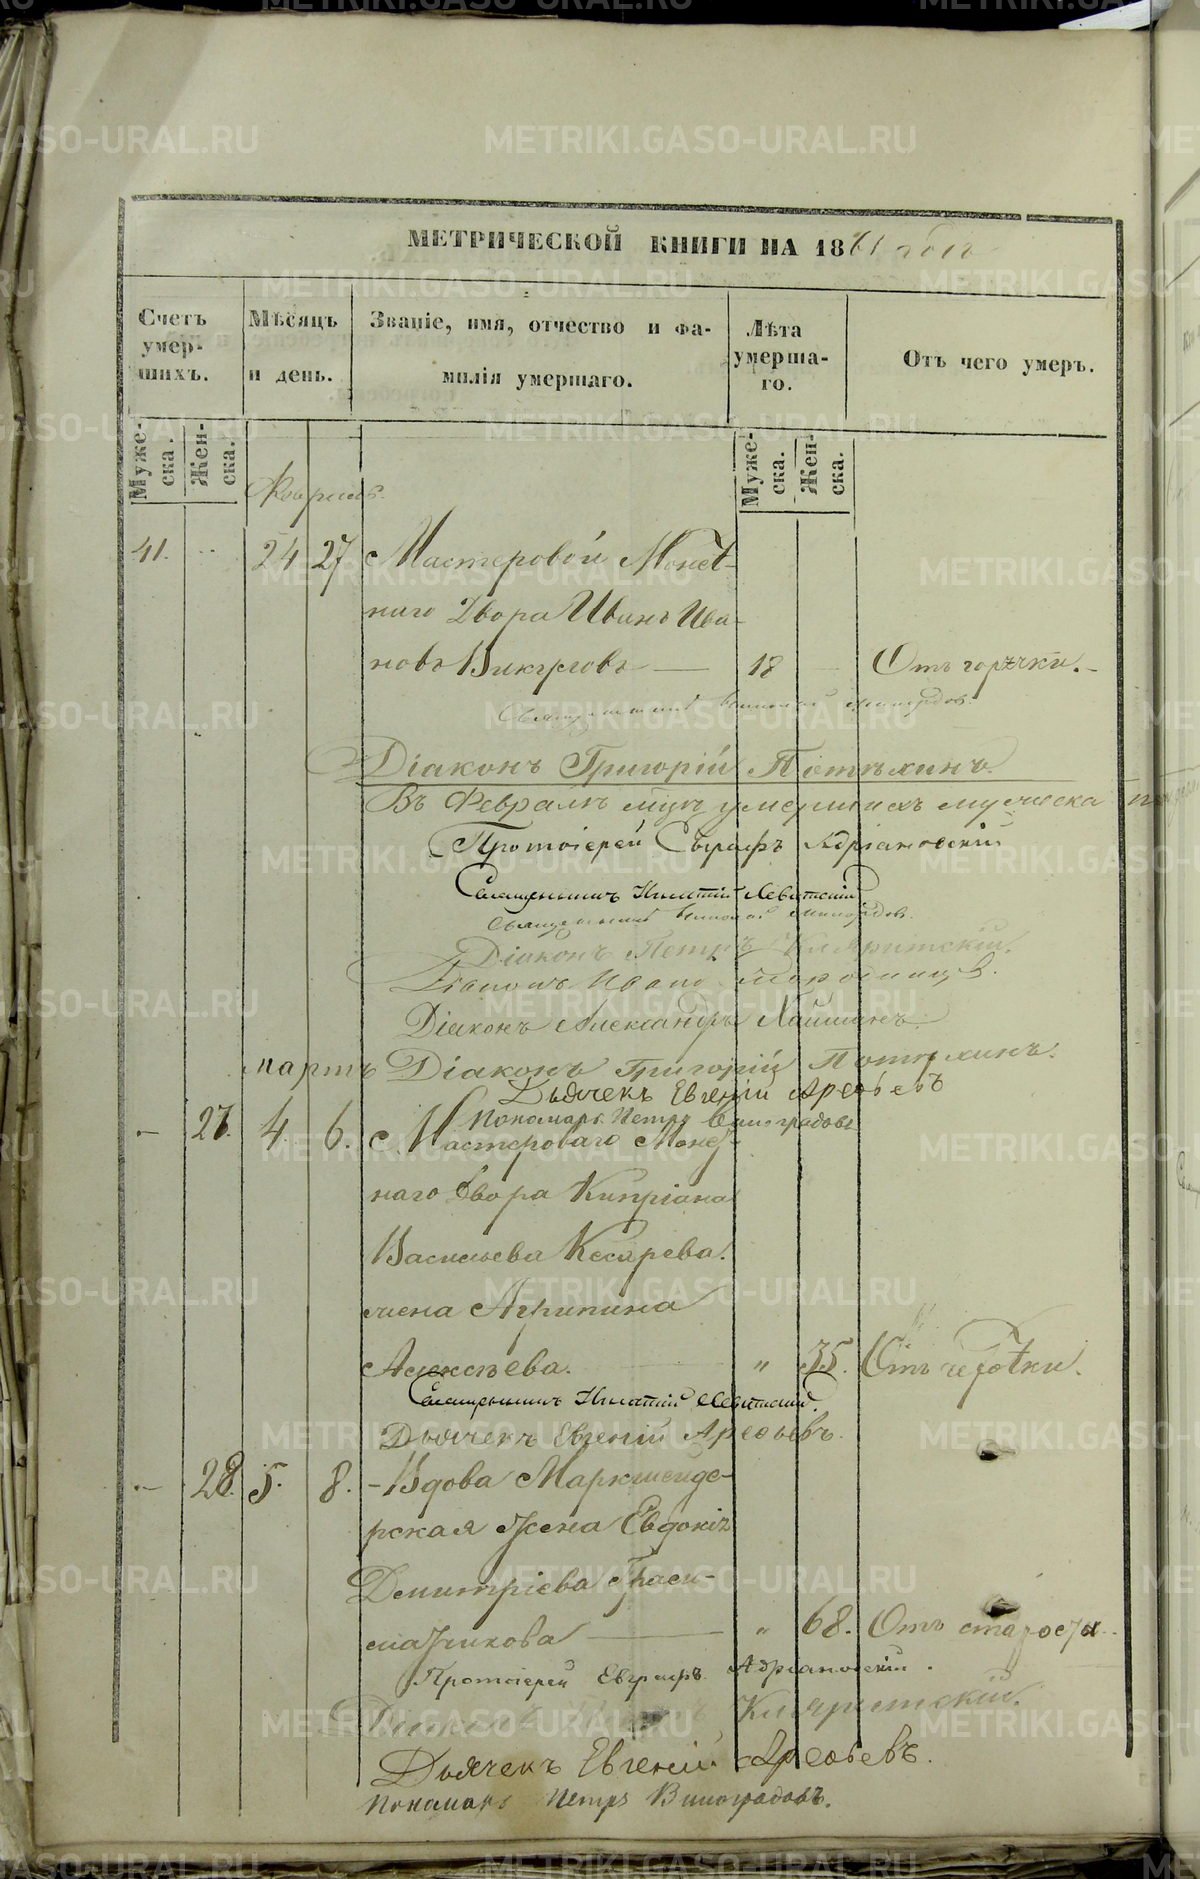 МЕТРИЧЕСКОЙ КНИГИ НА 1861 годъ
Счетъ умер- шихъ.
Мѣсяцъ и день.
Званіе, имя, отчество и фа- милія умершаго.
Лѣта умерша- го.
Отъ чего умеръ.
Муже- ска.
Жен- ска.
Муже- ска.
Жен- ска.
Февраль
41. 24 27 Мастеровой Монет-
наго Двора Иванъ Ива-
новъ Викуловъ — 18 Отъ горячки.
Священникъ
Діаконъ Григорій Потѣхинъ
Въ Февралѣ мцѣ умершихъ мужеска
Протоіерей Евграфъ Адріановскій
Священникъ Игнатій Левитскій
Священникъ
Діаконъ Петръ
Діаконъ Иванъ
Діаконъ Александръ
Мартъ Діаконъ Григорій Потѣхинъ.
Дьячекъ Евгеній Арефьевъ
Пономарь Петръ Виноградовъ
— 27. 4. 6. Мастероваго Монет-
наго Двора Кипріана
Васильева Кесарева.
жена Агрипина
Алексѣева. " 35. Отъ чехотки.
Священникъ Игнатій Левитскій.
Дьячекъ Евгеній Арефьевъ.
— 28. 5. 8. Вдова Маркшейде-
рская Жена Евдокія
Димитріева Граси-
— " 68. Отъ старости.
Протоіерей Евграфъ Адріановскій.
Діаконъ
Дьячекъ Евгеній Арефьевъ.
Пономарь Петръ Виноградовъ.
METRIKI.GASO-URAL.RU